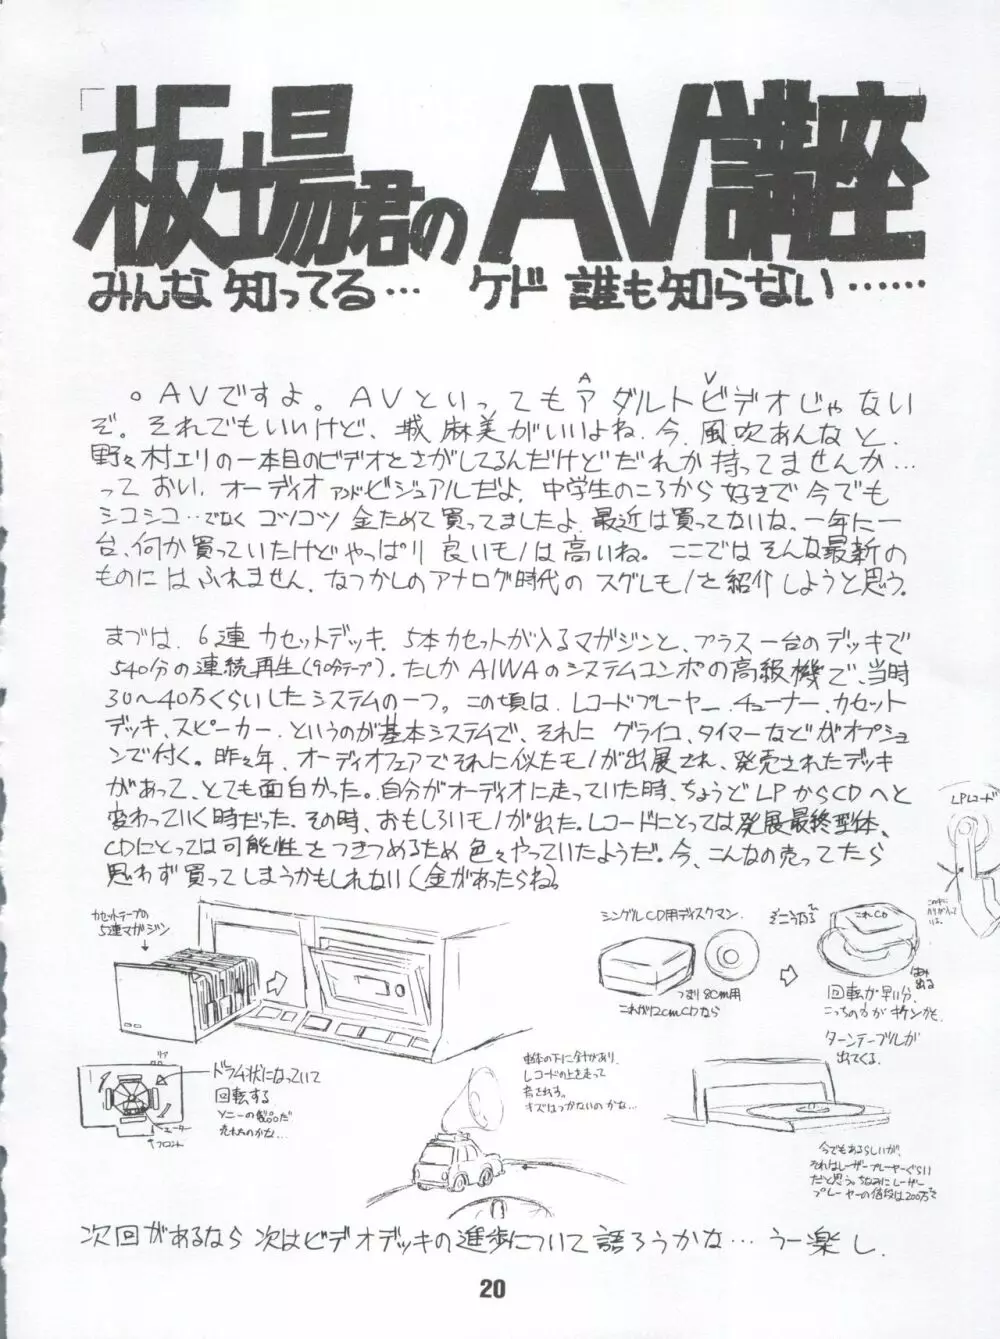 「板場君のAV講座」
みんな知ってる… ケド 誰も知らない……
○AVですよ。AVといってもアダルトビデオじゃない
A V
ぞ。それでもいいけど、城麻美がいいよね、今、風吹あんなと、
野々村エリの一本目のビデオとさがしてるんだけどだれか持ってませんか…
っておい、オーディオアンドビジュアルだよ。中学生のころから好きで今でも
シコシコ…でなくコツコツ金ためて買ってましたよ。最近は買ってないな、一年に一
台、何か買っていたけどやっぱり良いモノは高いね。ここではそんな最新の
ものにはふれません、なつかしのアナログ時代のスグレモノを紹介しようと思う。
まづは、6連カセットデッキ、5本カセットが入るマガジンと、プラス一台のデッキで
540分の連続再生(90分テープ)。たしかAIWAのシステムコンポの高級機で、当時
30～40万くらいしたシステムの一つ。この頃は、レコードプレーヤー、チューナー、カセット
デッキ、スピーカー、というのが基本システムで、それにグライコ、タイマーなどがオプショ
ンで付く。昨々年、オーディオフェアでそれに似たモノが出展され、発売されたデッキ
があって、とても面白かった。自分がオーディオに走っていた時、ちょうどLPからCDへと
変わっていく時だった、その時、おもしろいモノが出た。レコードにとっては発展最終型体、
CDにとっては可能性をつきつめるため色々やっていたようだ。今、こんなの売ってたら
思わず買ってしまうかもしれない(金があったらね。
カセットテープの
5連マガジン
シングルCD用ディスクマン
つまり8cm用
これが12cmCDなら
そこうなる
これCD
はみ
出る
回転が早い分、
こっちの方が
LPレコード
この中に
ハリが入って
いる。
ターンテーブルが
出てくる。
リア
モーター
フロント
ドラム状になっていて
回転する
ソニーの製品だ
売れたのかな…
車体の下に針があり、
レコードの上を走って
音を出す。
キズはつかないのかな…
今でもあるらしいが、
それはレーザープレーヤーぐらい
だと思う。ちなみにレーザー
プレーヤーの値段は200万で
次回があるなら次はビデオデッキの進歩について語ろうかな… うー楽し、
20